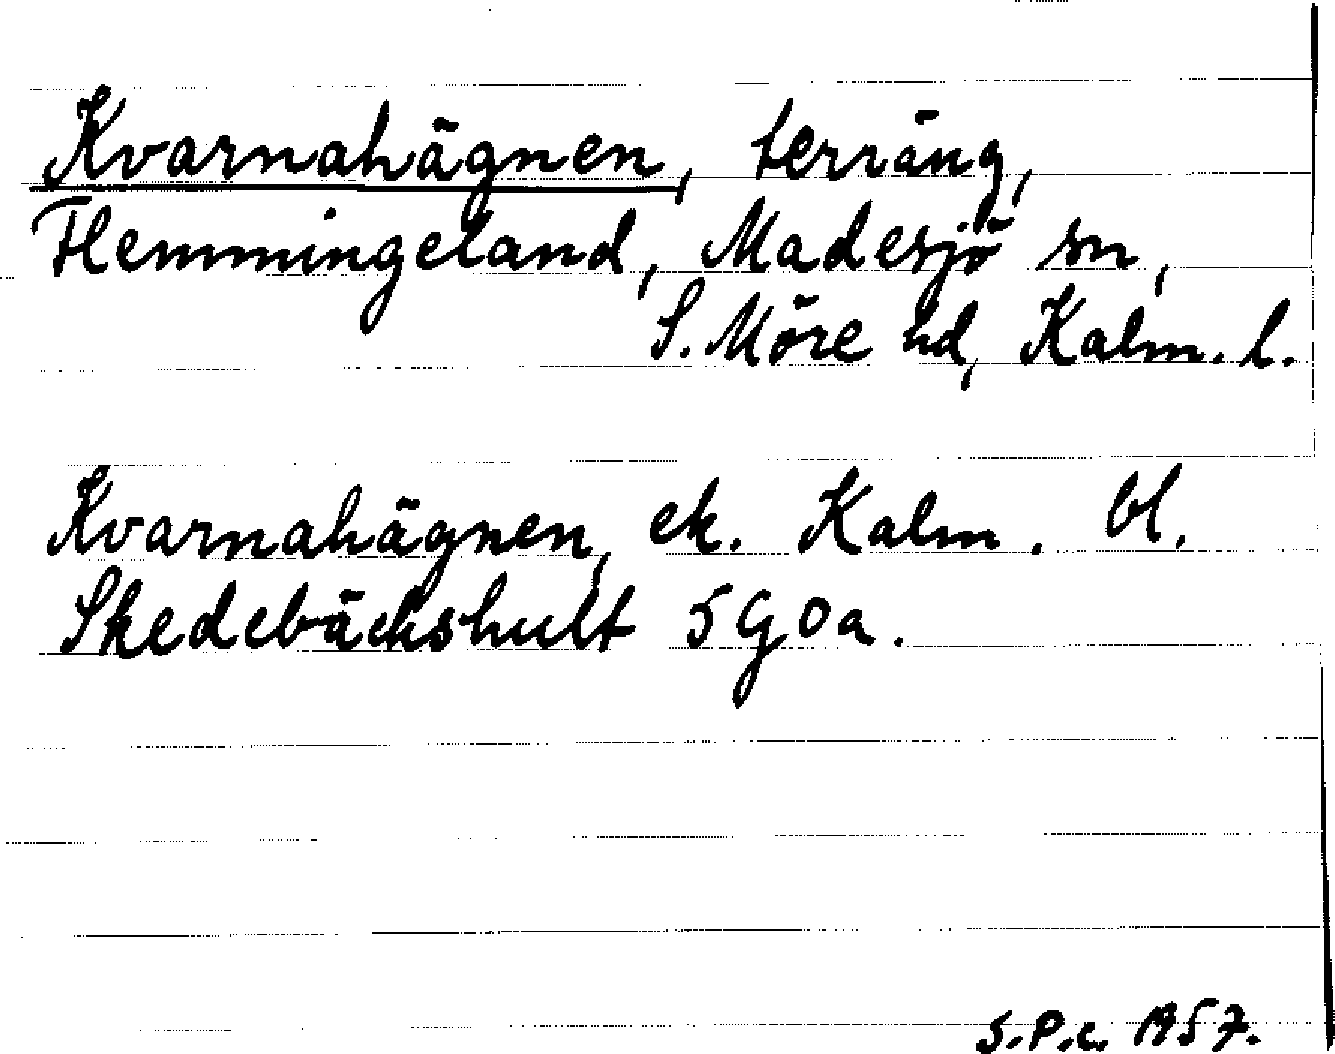 Kvarnahägnen, terräng,
Hemmingeland, Madesjö sn,
S. Möre hd, Kalm. l.
Kvarnahägnen, ek. Kalm. bl.
Skedebäckshult 5G0a.
S.P.c. 1957.